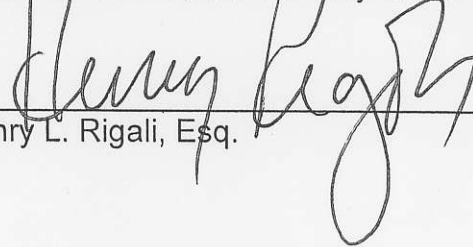 Henry Rigali
nry L. Rigali, Esq.